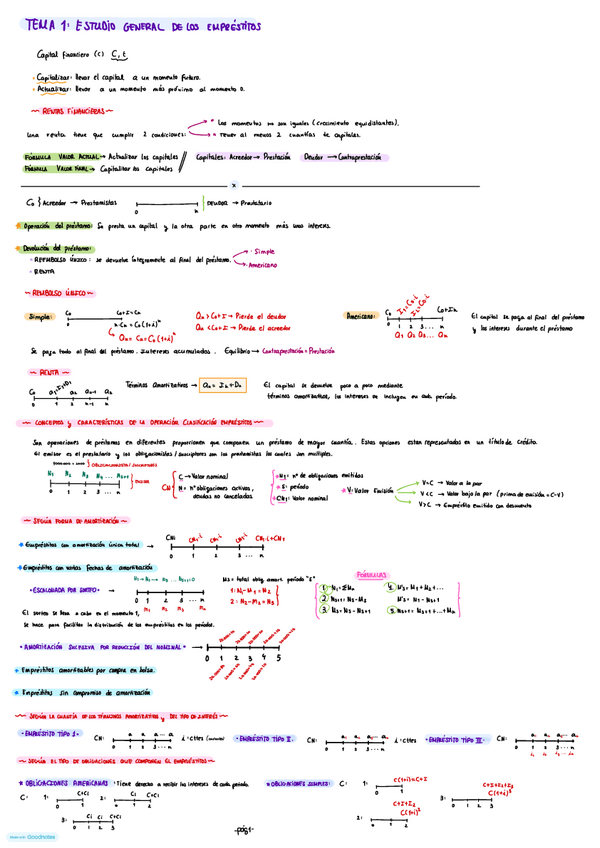 TEMA 1: ESTUDIO GENERAL DE LOS EMPRÉSTITOS
Capital financiero (C) C, t
· Capitalizar: llevar el capital a un momento futuro.
· Actualizar: llevar a un momento más próximo al momento 0.
~ RENTAS FINANCIERAS ~
* Los momentos son iguales (crecimiento equidistantes).
Una renta tiene que cumplir 2 condiciones:
* Tener al menos 2 cuantías de capitales.
FÓRMULA VALOR ACTUAL → Actualizar los capitales // Capitales: Acreedor → Prestación Deudor → Contraprestación
FÓRMULA VALOR FINAL → Capitalizar los capitales
x
C0 } Acreedor → Prestamistas
DEUDOR → Prestatario
0 n
* Operación del préstamo: Se presta un capital y la otra parte en otro momento más unos intereses.
* Devolución del préstamo:
· Simple
· REEMBOLSO ÚNICO: se devuelve íntegramente al final del préstamo.
· Americano
· RENTA
~ REMBOLSO ÚNICO ~
Simple: C0 C0+I=Cn
0 n
Cn = C0(1+i)^n
Qn = Cn = C0(1+i)^n
Qn > C0+I → Pierde el deudor
Qn < C0+I → Pierde el acreedor
Americano: C0 I1=C0·i I2=C0·i C0+In
0 1 2 3... n
Q1 Q2 Q3... Qn
El capital se paga al final del préstamo
y los intereses durante el préstamo
Se paga todo al final del préstamo. Intereses acumulados. Equilibrio → Contraprestación = Prestación
~ RENTA ~
C0 a1=I1+D1 a2 an-1 an
0 1 2 n-1 n
Términos Amortizativos → an = In + Dn
El capital se devuelve poco a poco mediante
términos amortizativos, los intereses se incluyen en cada período.
~ CONCEPTOS Y CARACTERÍSTICAS DE LA OPERACIÓN CLASIFICACIÓN EMPRÉSTITOS ~
Son operaciones de préstamos en diferentes proporciones que componen un préstamo de mayor cuantía. Estas opciones están representadas en un título de crédito.
El emisor es el prestatario y los obligacionistas / suscriptores son los prestamistas los cuales son múltiples.
} Obligacionistas / suscriptores
N1 N2 N3 N4 ... Ns+1
0 1 2 3 ... n
} EMISOR
CN
C → Valor nominal
N = nº obligaciones activas,
deudas no canceladas
* N1 = nº de obligaciones emitidas
* S: período
* CN1: Valor nominal
* V: Valor Emisión
V=C → Valor a la par
V<C → Valor bajo la par (prima de emisión = C-V)
V>C → Empréstito emitido con descuento
~ SEGÚN FORMA DE AMORTIZACIÓN ~
* Empréstitos con amortización única total →
CN1 CN1·i CN1·i CN1·i CN1·i+CN1
0 1 2 3 ... n
* Empréstitos con varias fechas de amortización
· ESCALONADA POR SORTEO →
0 1 2 3 ... n
M1 M2 M3 Mn
Ms = total oblig. amort. período "s"
1: N1 - M1 = N2
2: N2 - M2 = N3
FÓRMULAS
1. N1 = ΣMn
2. Ns+1 = Ns - Ms
3. Ms = Ns - Ns+1
4. M's = M1 + M2 + ...
M's = N1 - Ns+1
5. Ns+1 = Ms+1 + ... + Mn
El sorteo se lleva a cabo en el momento 1,
se hace para facilitar la distribución de los empréstitos en los períodos.
· AMORTIZACIÓN SUCESIVA POR REDUCCIÓN DEL NOMINAL →
0 1 2 3 4 5
* Empréstitos amortizables por compra en bolsa.
* Empréstitos sin compromiso de amortización
~ SEGÚN LA CUANTÍA DE LOS TÉRMINOS AMORTIZATIVOS Y DEL TIPO DE INTERÉS ~
· EMPRÉSTITO TIPO I · CN: a a a ... a
0 1 2 3 ... n
i = cttes
· EMPRÉSTITO TIPO II · CN: a1 a2 a3 ... an
0 1 2 3 ... n
i = cttes
· EMPRÉSTITO TIPO III · CN: a1 a2 a3 ... an
0 1 2 3 ... n
i1 i2 i3 ... in
~ SEGÚN EL TIPO DE OBLIGACIONES QUE COMPONEN EL EMPRÉSTITO ~
* OBLIGACIONES AMERICANAS · Tiene derecho a recibir los intereses de cada periodo.
C: 1: C+Ci
0 1
2: Ci C+Ci
0 1 2
3: Ci Ci C+Ci
0 1 2 3
* OBLIGACIONES SIMPLES: C: 1: C(1+i)=C+I
0 1
2: C+I1+I2
C(1+i)²
0 1 2
3: C+I1+I2+I3
C(1+i)³
0 1 2 3
-pág 1-
Made with Goodnotes